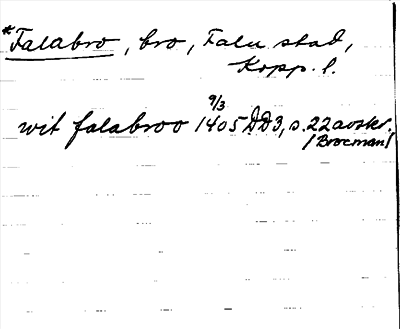 *Falabro, bro, Falu stad,
Kopp. l.
9/3
wit falabroo 1405 DD3, s. 22 avskr.
/Brocman/